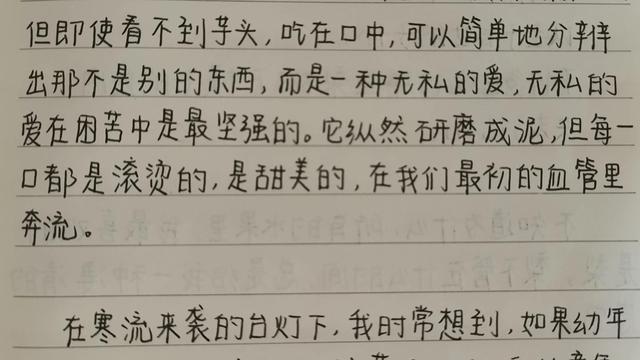 但即使看不到芋头,吃在口中,可以简单地分辨
出那不是别的东西,而是一种无私的爱,无私的
爱在困苦中是最坚强的。它纵然研磨成泥,但每一
口都是滚烫的,是甜美的,在我们最初的血管里
奔流。
在寒流来袭的台灯下,我时常想到,如果幼年